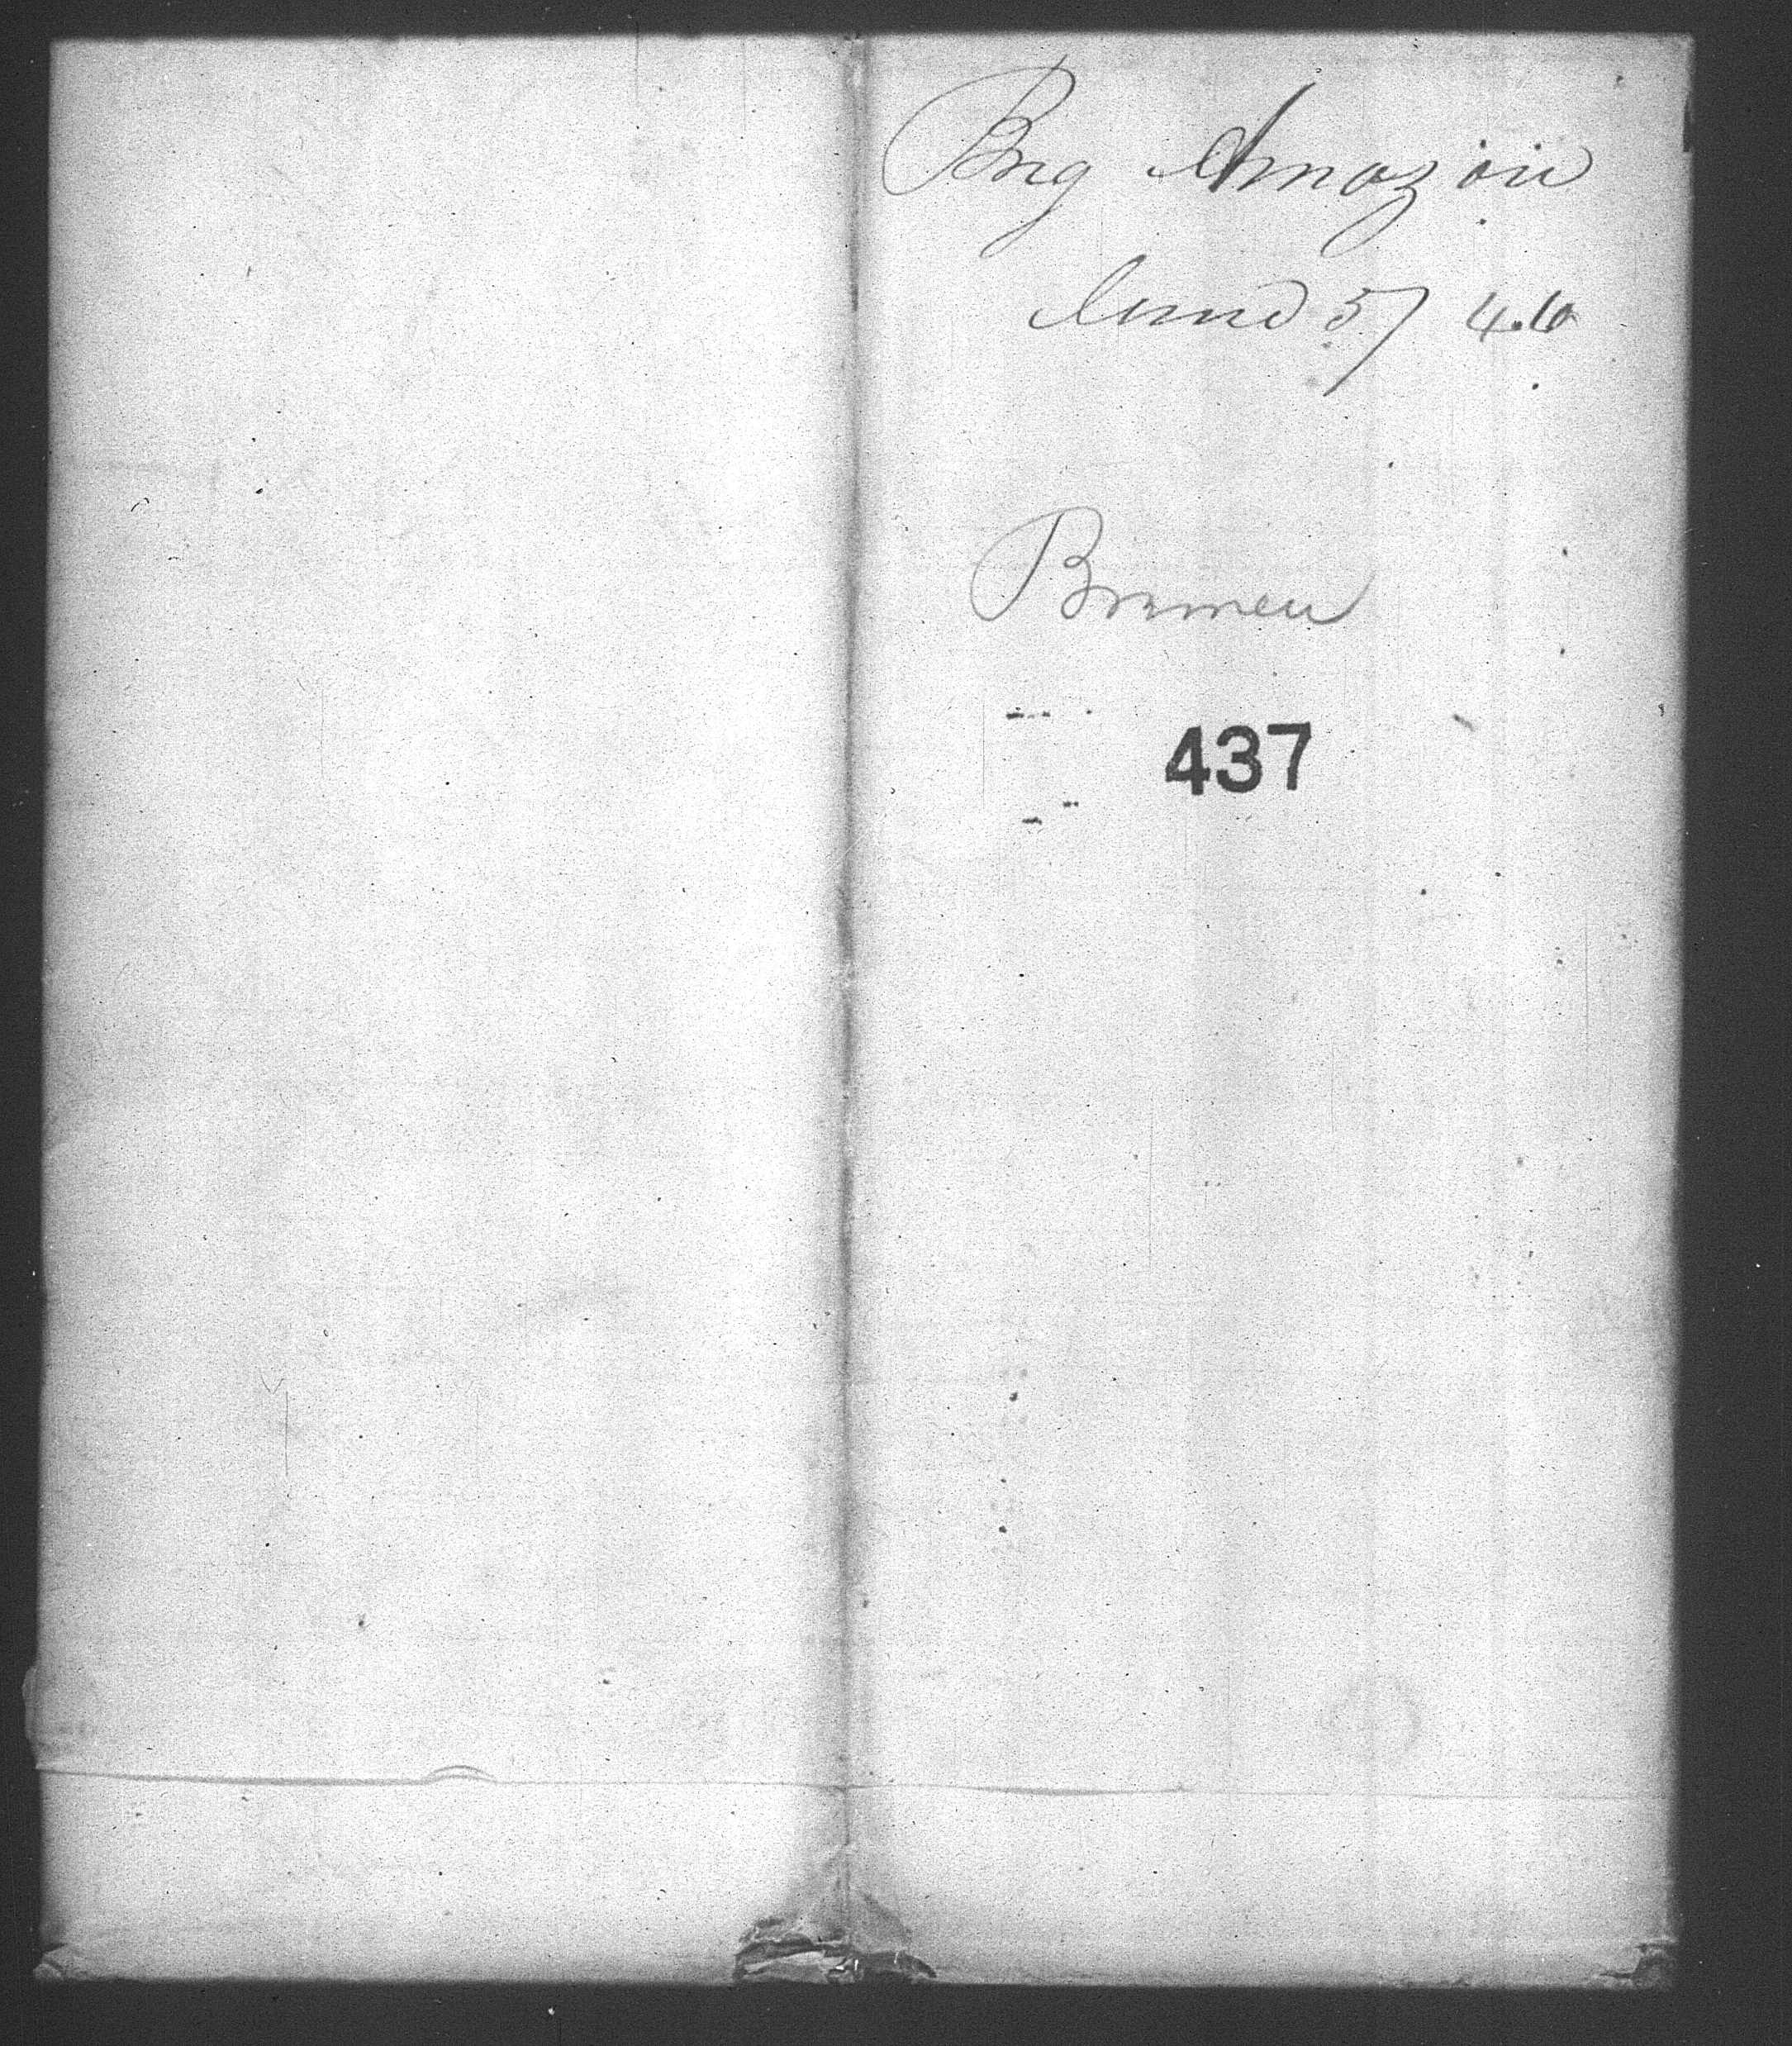 Brig Amazon
June 5/46
Bremen
437